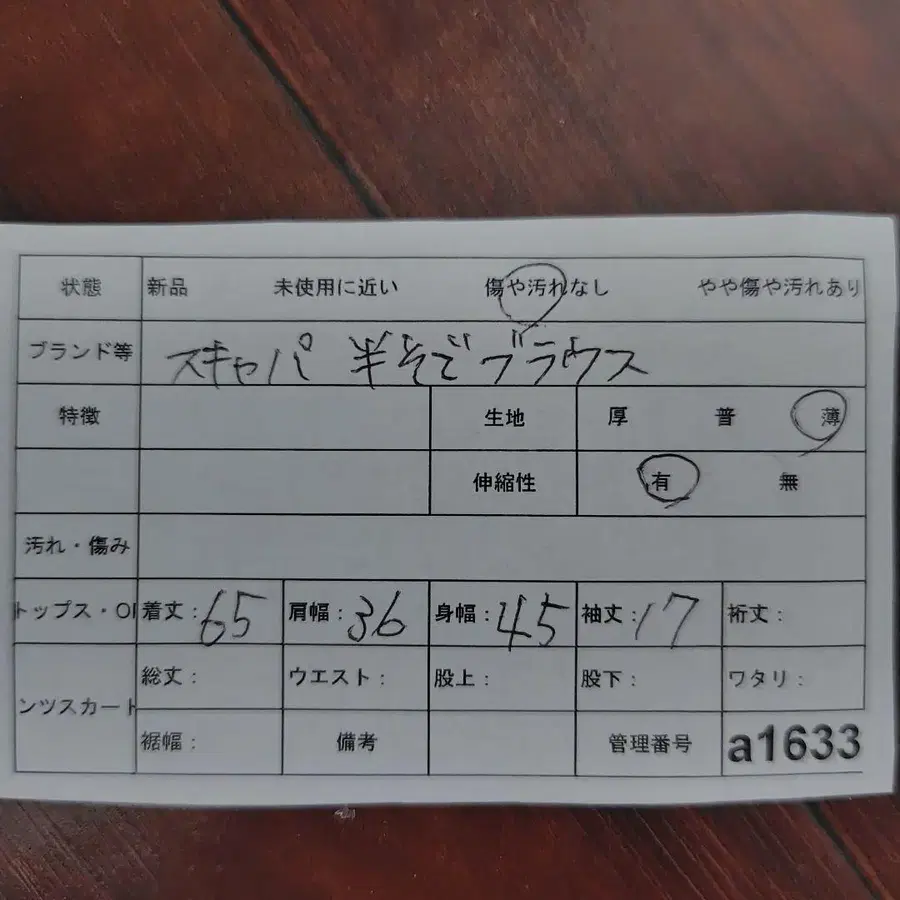 状態 新品 未使用に近い 傷や汚れなし やや傷や汚れあり
ブランド等 スキャパ 半そでブラウス
特徴 生地 厚 普 薄
伸縮性 有 無
汚れ・傷み
トップス・OI 着丈：65 肩幅：36 身幅：45 袖丈：17 裄丈：
総丈： ウエスト： 股上： 股下： ワタリ：
ンツスカート
裾幅： 備考 管理番号 a1633